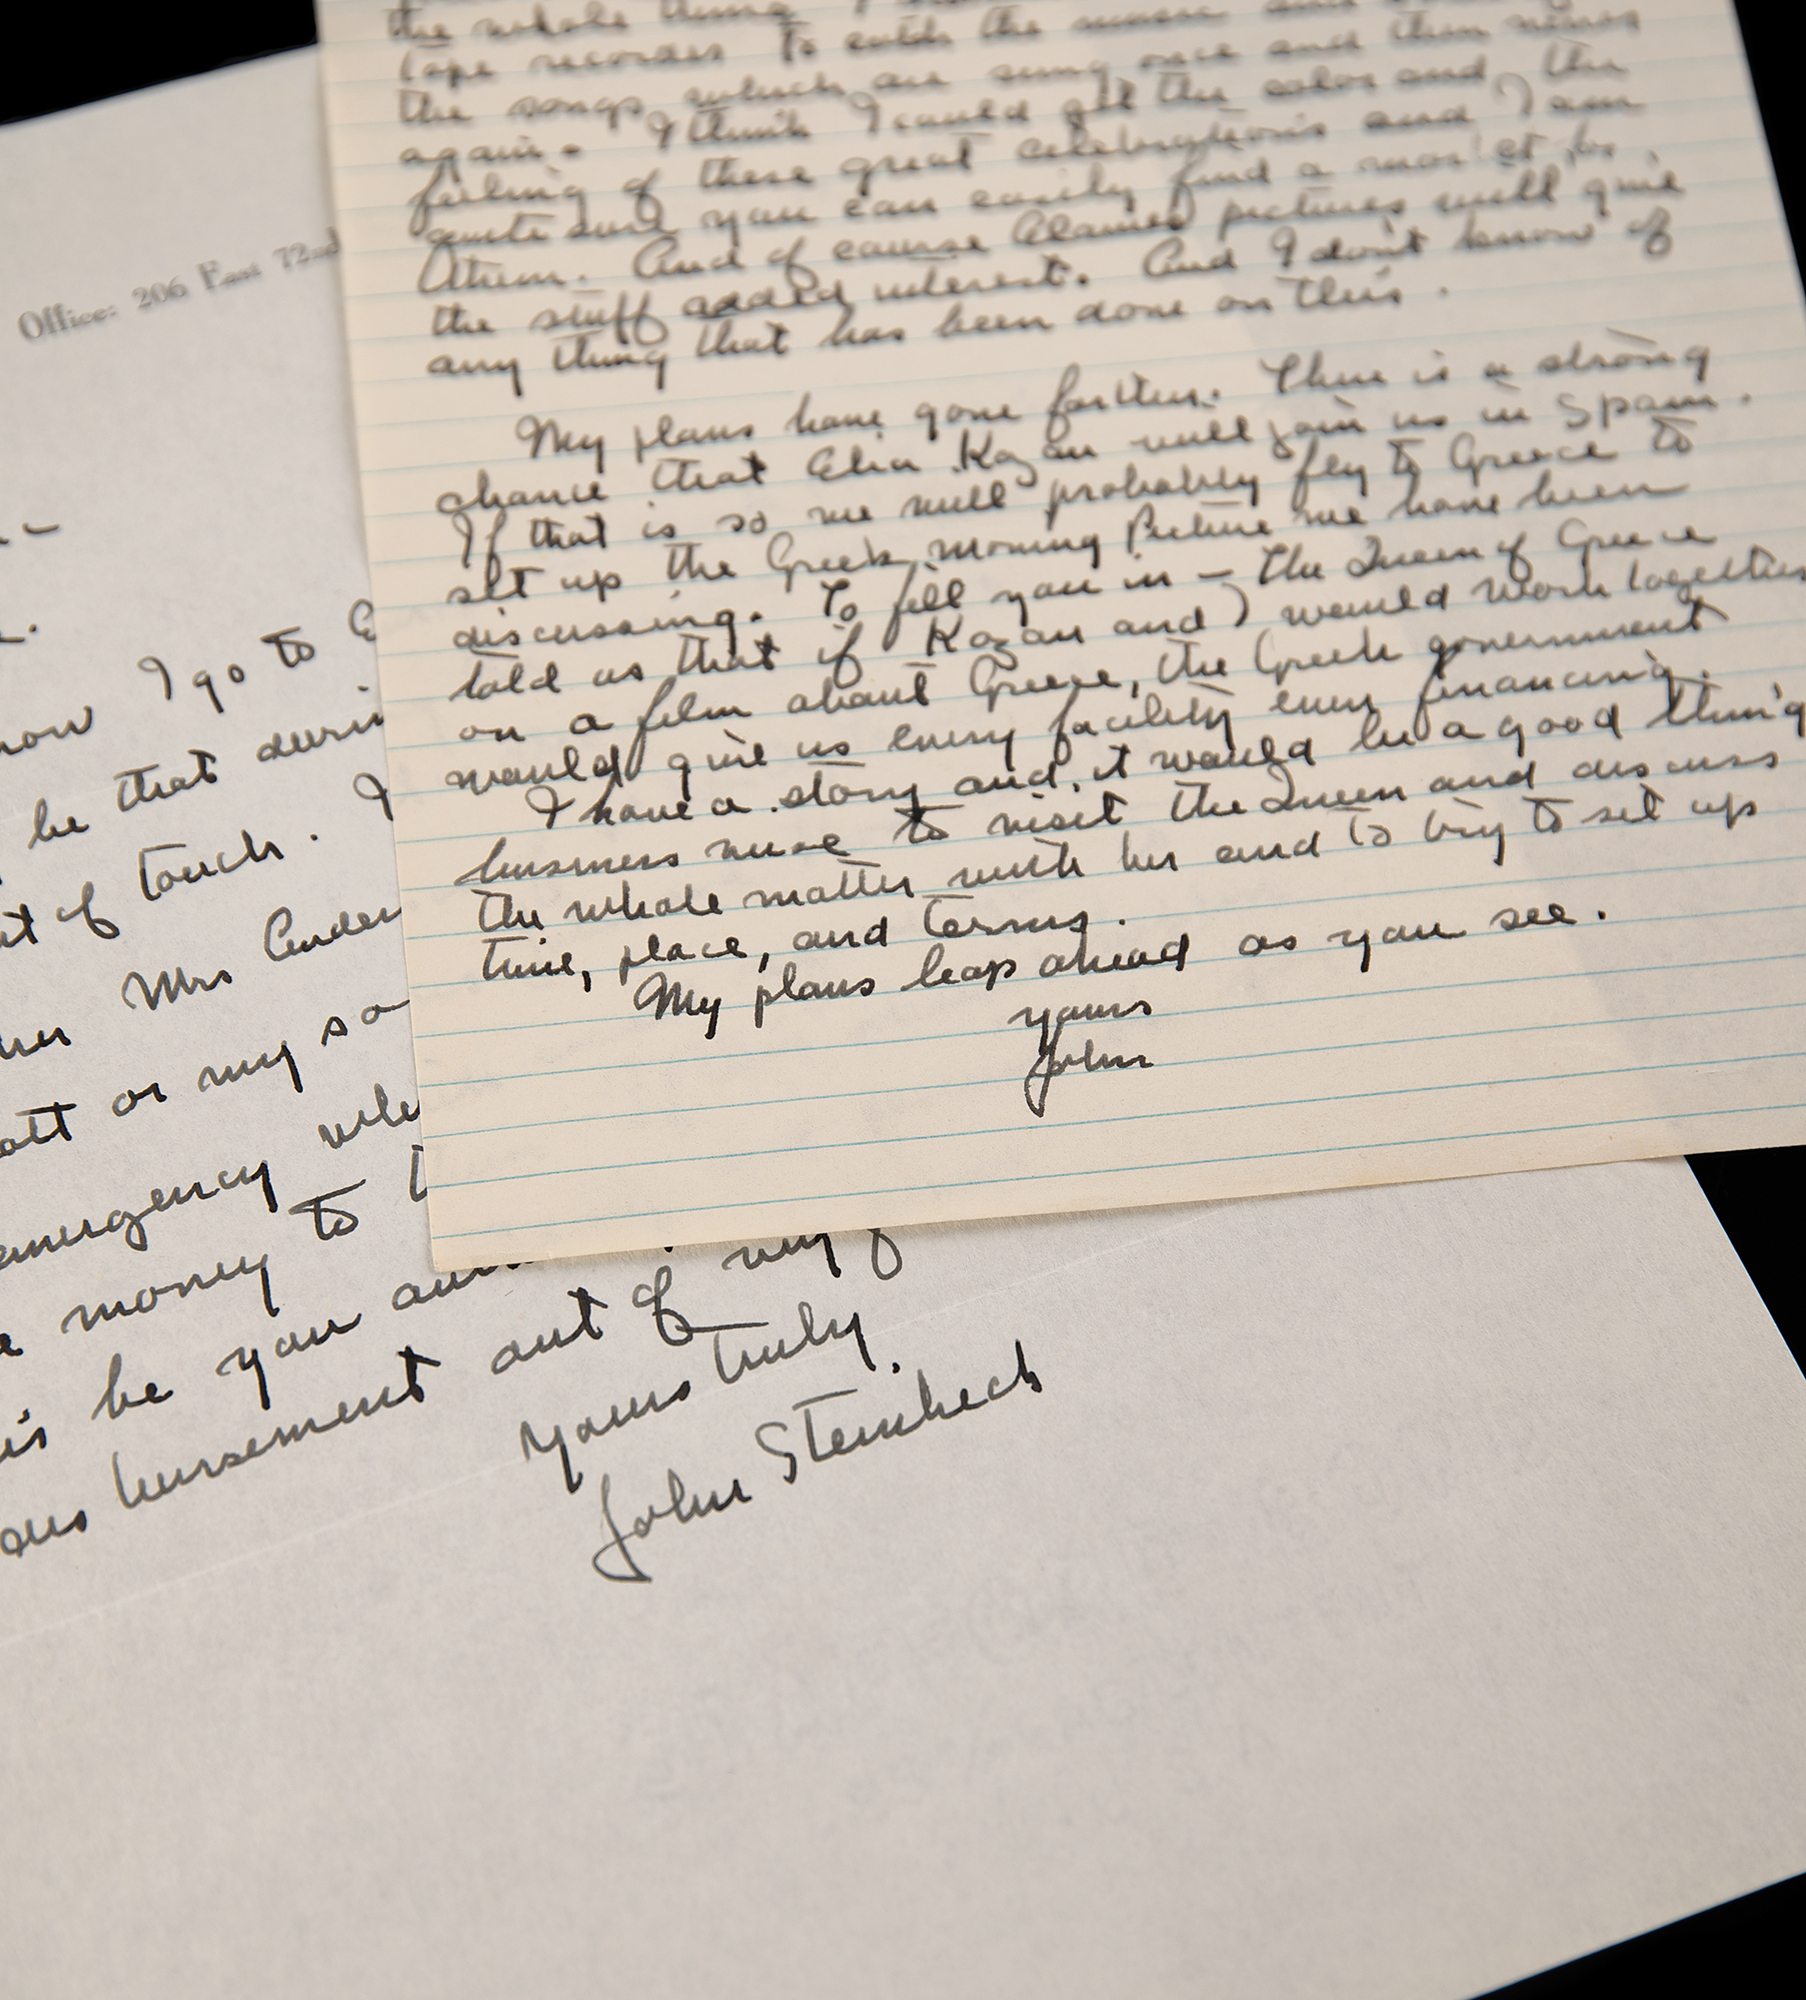 the whole thing
tape recorder to catch the music and
the songs which are sung once and then never
again. I think I could get the color and the
feeling of these great celebrations and I am
quite sure you can easily find a market for
them. And of course pictures will give
the stuff added interest. And I don't know of
any thing that has been done on this.
My plans have gone farther. There is a strong
chance that Elia Kazan will join us in Spain.
If that is so we will probably fly to Greece to
set up the Greek moving Picture we have been
discussing. To fill you in — The Queen of Greece
told us that if Kazan and I would work together
on a film about Greece, the Greek government
would give us every facility even financing.
I have a story and it would be a good thing
business wise to visit the Queen and discuss
the whole matter with her and to try to set up
time, place, and terms.
My plans leap ahead as you see.
yours
John
Office: 206 East 72nd
I go to
be that
of touch. I
Mrs
or my
emergency
money to
be you
out of my
yours truly
John Steinbeck